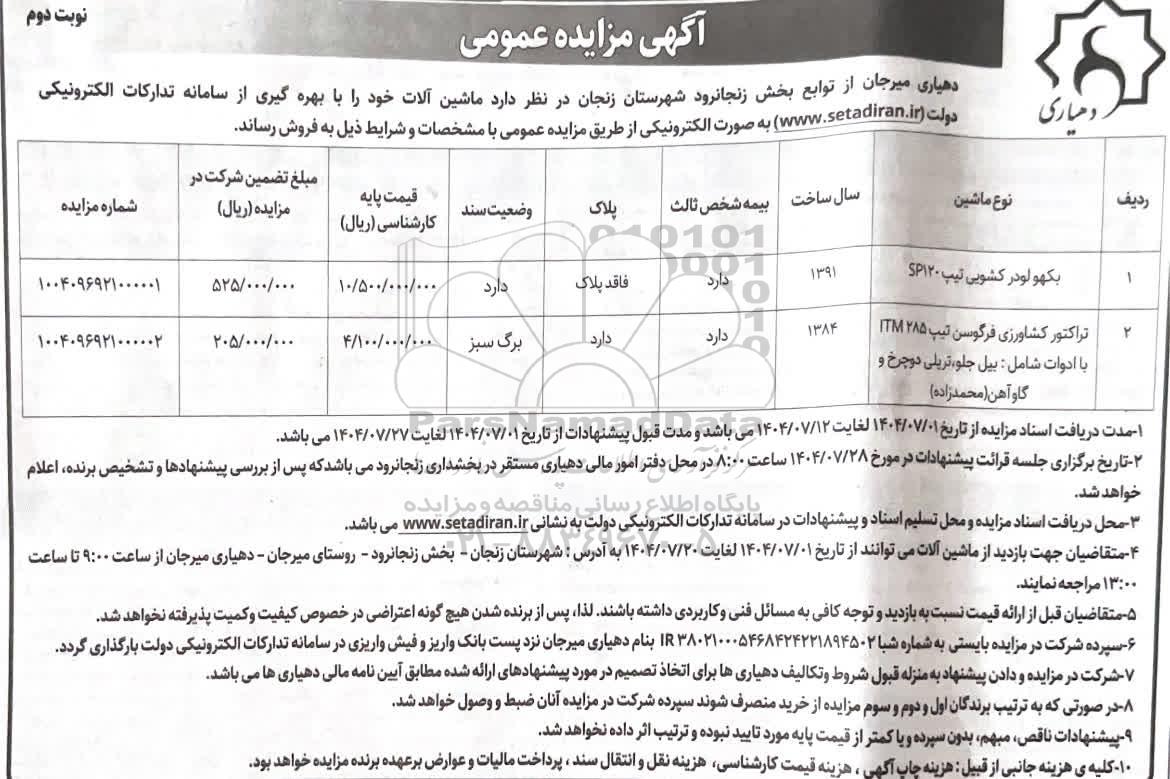 نوبت دوم
آگهی مزایده عمومی
دهیاری
دهیاری میرجان از توابع بخش زنجانرود شهرستان زنجان در نظر دارد ماشین آلات خود را با بهره گیری از سامانه تدارکات الکترونیکی
دولت (www.setadiran.ir) به صورت الکترونیکی از طریق مزایده عمومی با مشخصات و شرایط ذیل به فروش رساند.
ردیف نوع ماشین سال ساخت بیمه شخص ثالث پلاک وضعیت سند قیمت پایه کارشناسی (ریال) مبلغ تضمین شرکت در مزایده (ریال) شماره مزایده
۱ بکهو لودر کشویی تیپ SP۱۲۰ ۱۳۹۱ دارد فاقد پلاک دارد ۱۰/۵۰۰/۰۰۰/۰۰۰ ۵۲۵/۰۰۰/۰۰۰ ۱۰۰۴۰۹۶۹۲۱۰۰۰۰۰۱
۲ تراکتور کشاورزی فرگوسن تیپ ITM ۲۸۵ ۱۳۸۴ دارد دارد برگ سبز ۴/۱۰۰/۰۰۰/۰۰۰ ۲۰۵/۰۰۰/۰۰۰ ۱۰۰۴۰۹۶۹۲۱۰۰۰۰۰۲
با ادوات شامل : بیل جلو،تریلی دوچرخ و
گاوآهن(محمدزاده)
ParsNamadData
۱-مدت دریافت اسناد مزایده از تاریخ ۱۴۰۴/۰۷/۰۱ لغایت ۱۴۰۴/۰۷/۱۲ می باشد و مدت قبول پیشنهادات از تاریخ ۱۴۰۴/۰۷/۰۱ لغایت ۱۴۰۴/۰۷/۲۷ می باشد.
۲-تاریخ برگزاری جلسه قرائت پیشنهادات در مورخ ۱۴۰۴/۰۷/۲۸ ساعت ۸:۰۰ در محل دفتر امور مالی دهیاری مستقر در بخشداری زنجانرود می باشدکه پس از بررسی پیشنهادها و تشخیص برنده، اعلام
خواهد شد.
پایگاه اطلاع رسانی مناقصه و مزایده
۳-محل دریافت اسناد مزایده و محل تسلیم اسناد و پیشنهادات در سامانه تدارکات الکترونیکی دولت به نشانی www.setadiran.ir می باشد.
۰۲۱-۸۸۳۴۹۶۷۰-۵
۴-متقاضیان جهت بازدید از ماشین آلات می توانند از تاریخ ۱۴۰۴/۰۷/۰۱ لغایت ۱۴۰۴/۰۷/۲۰ به آدرس : شهرستان زنجان - بخش زنجانرود - روستای میرجان - دهیاری میرجان از ساعت ۹:۰۰ تا ساعت
۱۳:۰۰ مراجعه نمایند.
۵-متقاضیان قبل از ارائه قیمت نسبت به بازدید و توجه کافی به مسائل فنی و کاربردی داشته باشند. لذا، پس از برنده شدن هیچ گونه اعتراضی در خصوص کیفیت و کمیت پذیرفته نخواهد شد.
۶-سپرده شرکت در مزایده بایستی به شماره شبا IR ۳۸۰۲۱۰۰۰۵۴۶۸۴۲۴۲۲۱۸۹۴۵۰۲ بنام دهیاری میرجان نزد پست بانک واریز و فیش واریزی در سامانه تدارکات الکترونیکی دولت بارگذاری گردد.
۷-شرکت در مزایده و دادن پیشنهاد به منزله قبول شروط و تکالیف دهیاری ها برای اتخاذ تصمیم در مورد پیشنهادهای ارائه شده مطابق آیین نامه مالی دهیاری ها می باشد.
۸-در صورتی که به ترتیب برندگان اول و دوم و سوم مزایده از خرید منصرف شوند سپرده شرکت در مزایده آنان ضبط و وصول خواهد شد.
۹-پیشنهادات ناقص، مبهم، بدون سپرده و یا کمتر از قیمت پایه مورد تایید نبوده و ترتیب اثر داده نخواهد شد.
۱۰-کلیه ی هزینه جانبی از قبیل : هزینه چاپ آگهی ، هزینه قیمت کارشناسی، هزینه نقل و انتقال سند ، پرداخت مالیات و عوارض برعهده برنده مزایده خواهد بود.